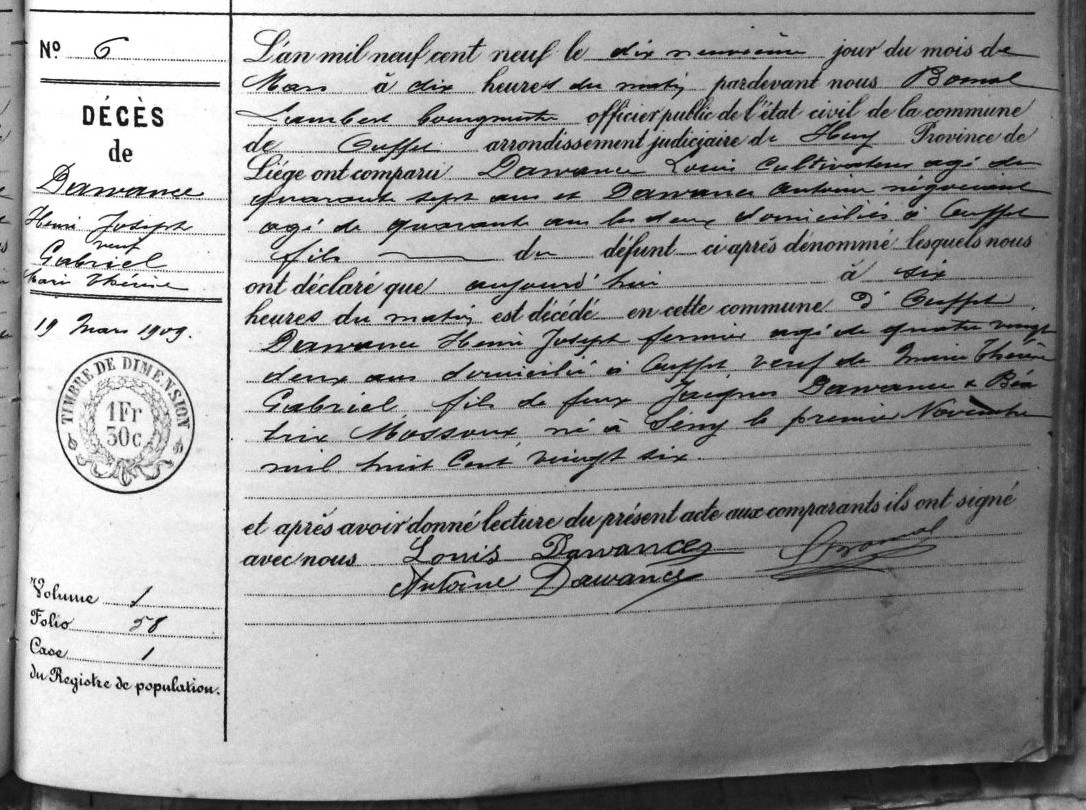 Nº 6
DÉCÈS
de
Dawance
Henri Joseph
veuf
Gabriel
Marie Thérèse
19 Mars 1909.
TIMBRE DE DIMENSION
1Fr
30c
Volume 1
Folio 58
Case 1
du Registre de population.
L'an mil neuf cent neuf le dix neuvième jour du mois de
Mars à dix heures du matin pardevant nous Bomal
Lambert bourgmestre officier public de l'état civil de la commune
de Ouffet arrondissement judiciaire de Huy Province de
Liége ont comparu Dawance Louis Cultivateur agé de
quarante sept ans et Dawance Antoine négociant
agé de quarante ans les deux domiciliés à Ouffet
fils du défunt ci après dénommé lesquels nous
ont déclaré que aujourd'hui à six
heures du matin est décédé en cette commune d'Ouffet
Dawance Henri Joseph fermier agé de quatre vingt
deux ans domicilié à Ouffet veuf de Marie Thérèse
Gabriel, fils de feux Jacques Dawance & Béa
trix Mossoux né à Seny le premier Novembre
mil huit cent vingt six.
et après avoir donné lecture du présent acte aux comparants ils ont signé
avec nous Louis Dawance
Antoine Dawance
LBomal